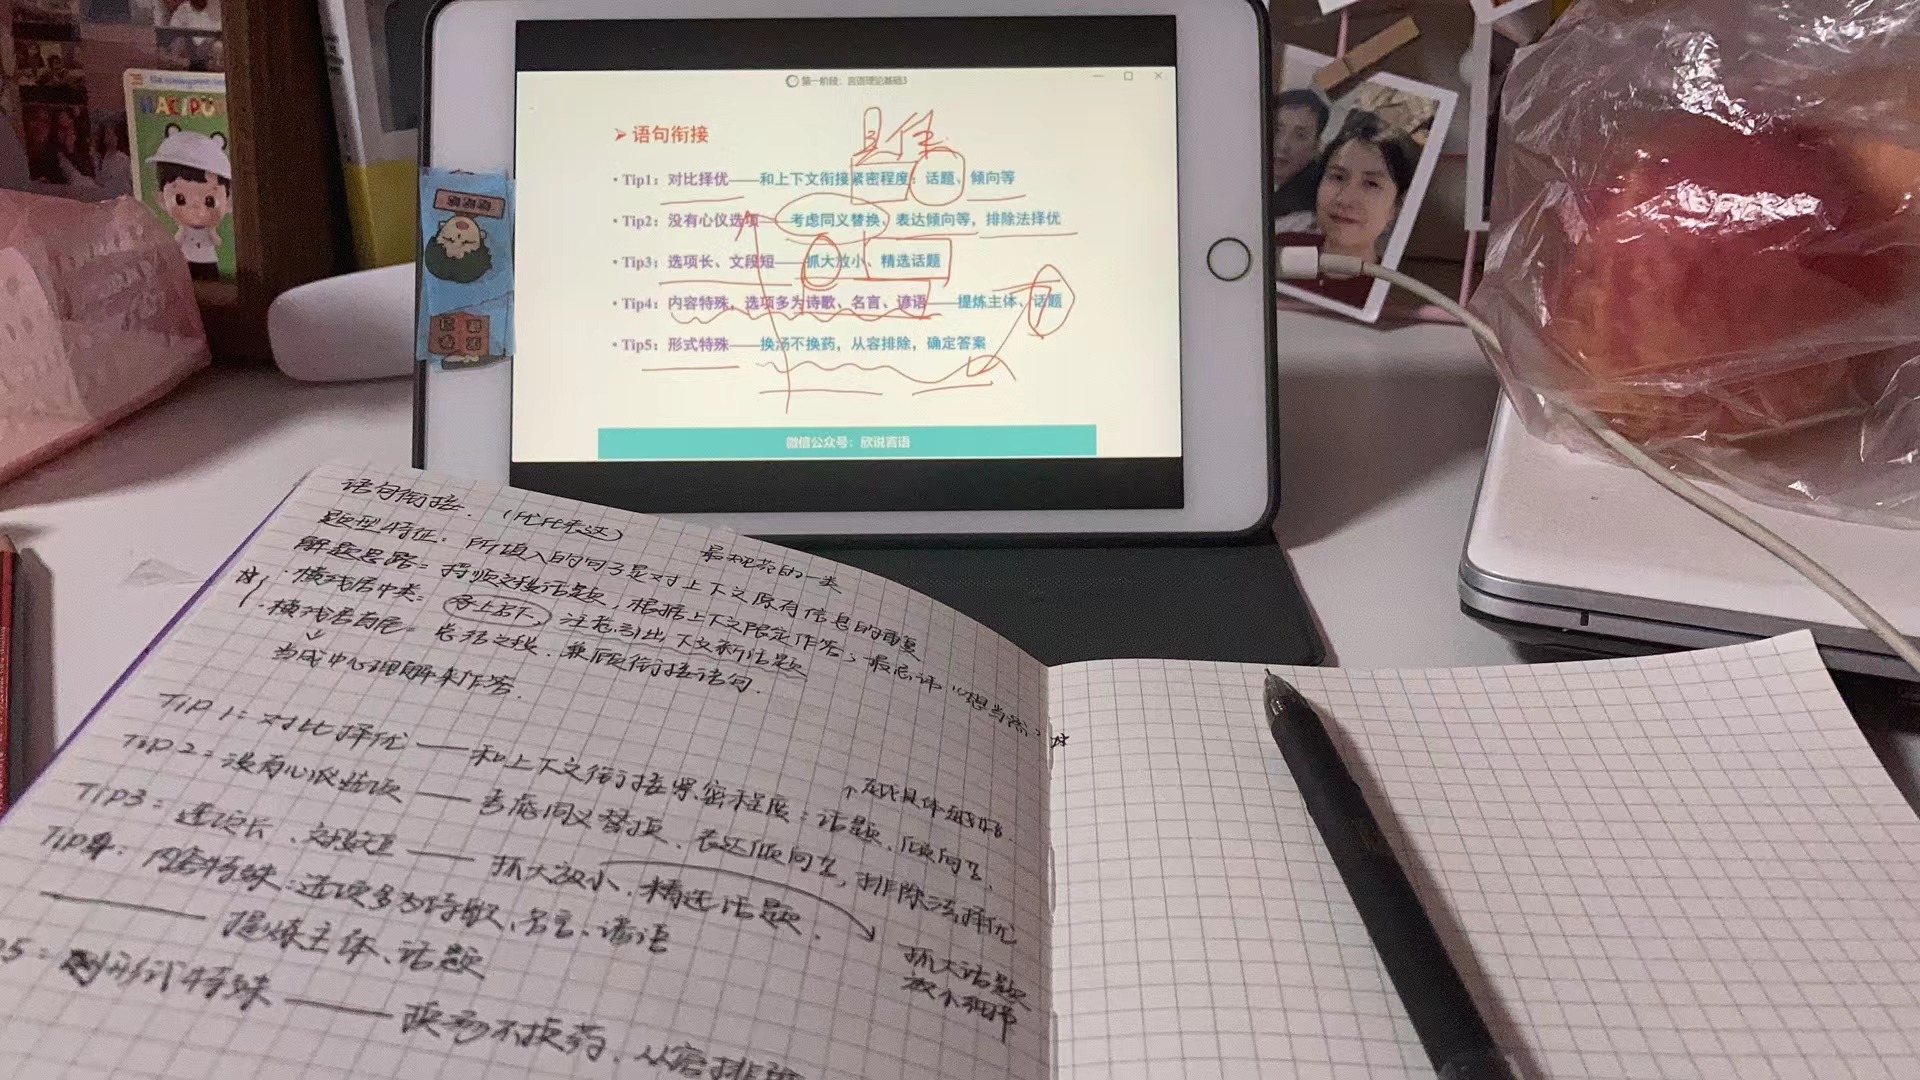 第一阶段：言语理论基础3
语句衔接
具体
• Tip1：对比择优——和上下文衔接紧密程度：话题、倾向等
• Tip2：没有心仪选项——考虑同义替换，表达倾向等，排除法择优
• Tip3：选项长、文段短——抓大放小、精选话题
• Tip4：内容特殊，选项多为诗歌、名言、谚语——提炼主体、话题
• Tip5：形式特殊——换汤不换药，从容排除，确定答案
微信公众号：欣说言语
语句衔接.
题型特征：所填入的句子是对上下文原有信息的重复
解题思路：根据上下文限定作答，最忌讳“想当然”
横线居中类：承上启下，注意引出下文新话题
横线居首尾：总括文段.兼顾衔接语句.
当成中心理解来作答.
Tip 1：对比择优——和上下文衔接紧密程度：话题、倾向等.
Tip 2：没有心仪选项——考虑同义替换、表达倾向等，排除法择优
Tip3：选项长、文段短——抓大放小、精选话题.
抓大话题
放小细节
Tip4：内容特殊：选项多为诗歌、名言、谚语
——提炼主体、话题
p5：形式特殊——换汤不换药、从容排